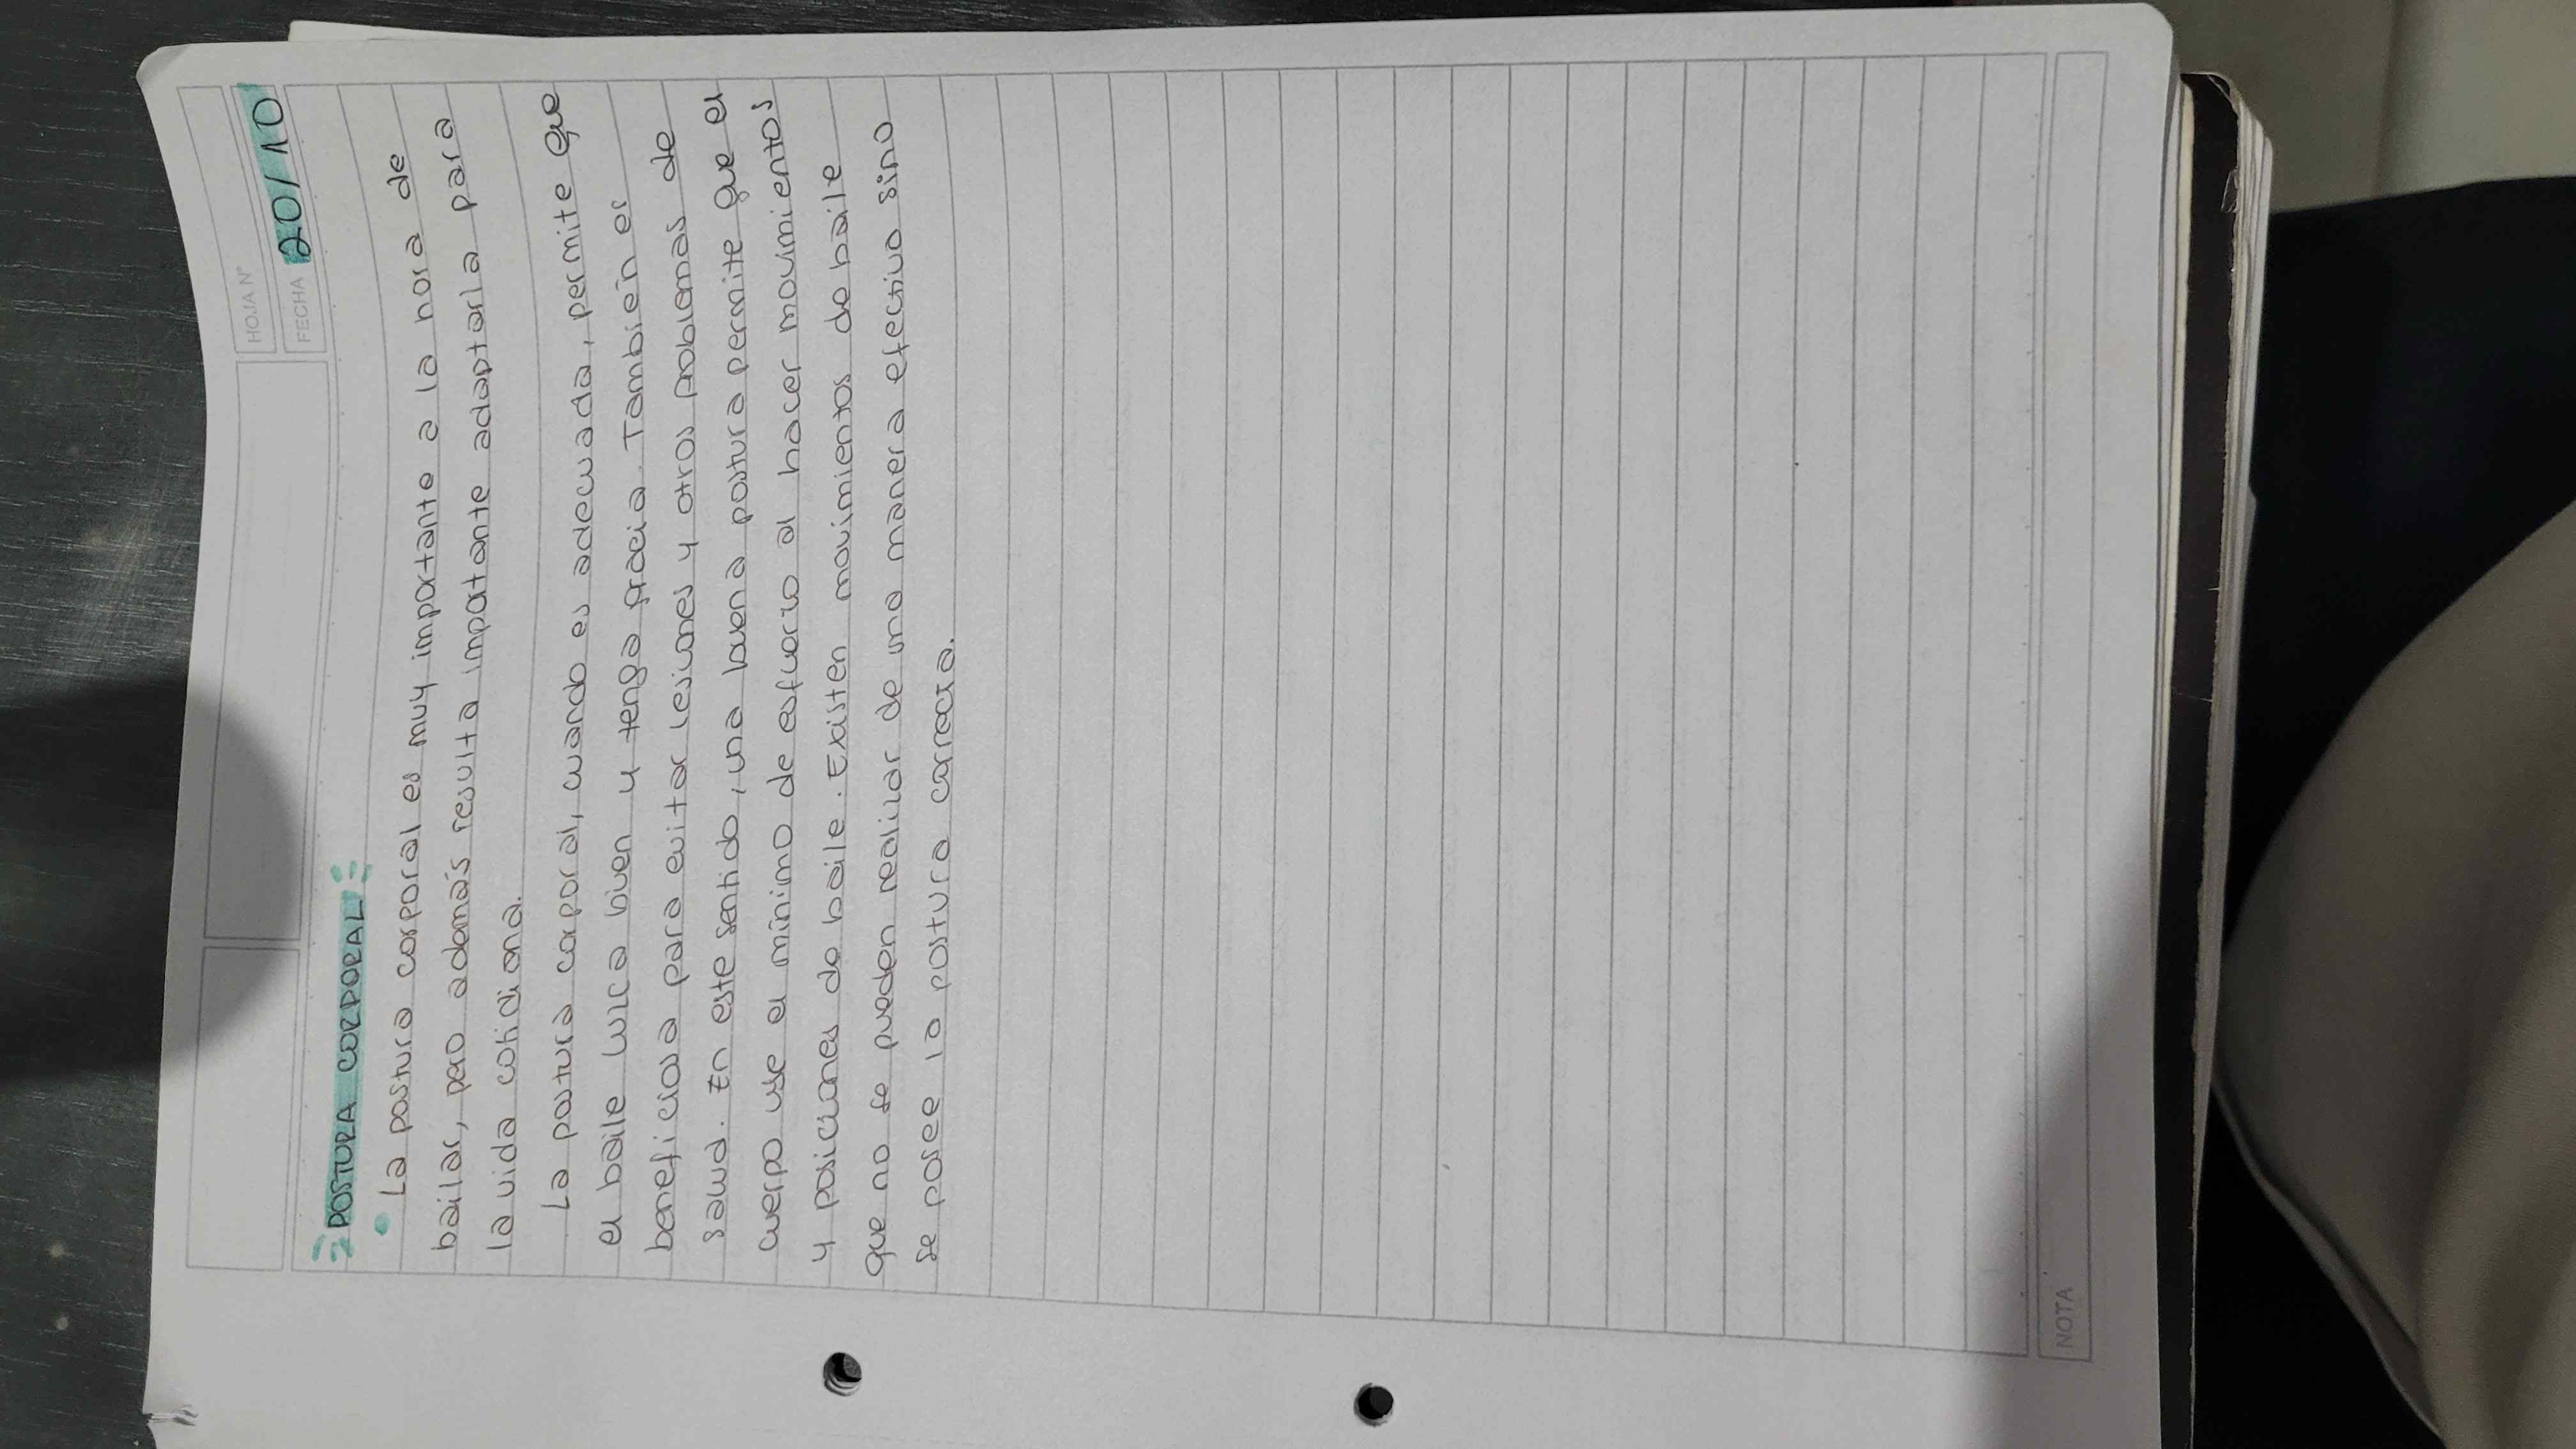 HOJA N°
FECHA 20/10
POSTURA CORPORAL
• La postura corporal es muy importante a la hora de
bailar, pero además resulta importante adaptarla para
la vida cotidiana.
La postura corporal, cuando es adecuada, permite que
el baile luzca bien y tenga gracia. También es
beneficiosa para evitar lesiones y otros problemas de
salud. En este sentido, una buena postura permite que el
cuerpo use el mínimo de esfuerzo al hacer movimientos
y posiciones de baile. Existen movimientos de baile
que no se pueden realizar de una manera efectiva sino
se posee la postura correcta.
NOTA